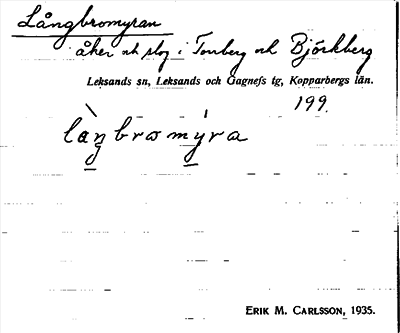 Långbromyran
åker och slog i Tonberg och Björkberg
Leksands sn, Leksands och Gagnefs tg, Kopparbergs län.
199.
làŋbromýra
ERIK M. CARLSSON, 1935.